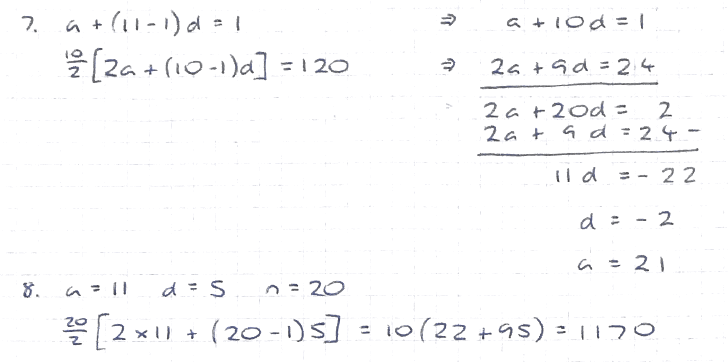 7. a + (11-1)d = 1 ⇒ a + 10d = 1
10/2 [2a + (10-1)d] = 120 ⇒ 2a + 9d = 24
2a + 20d = 2
2a + 9d = 24 -
11d = - 22
d = - 2
a = 21
8. a = 11 d = 5 n = 20
20/2 [2 × 11 + (20-1)5] = 10(22 + 95) = 1170